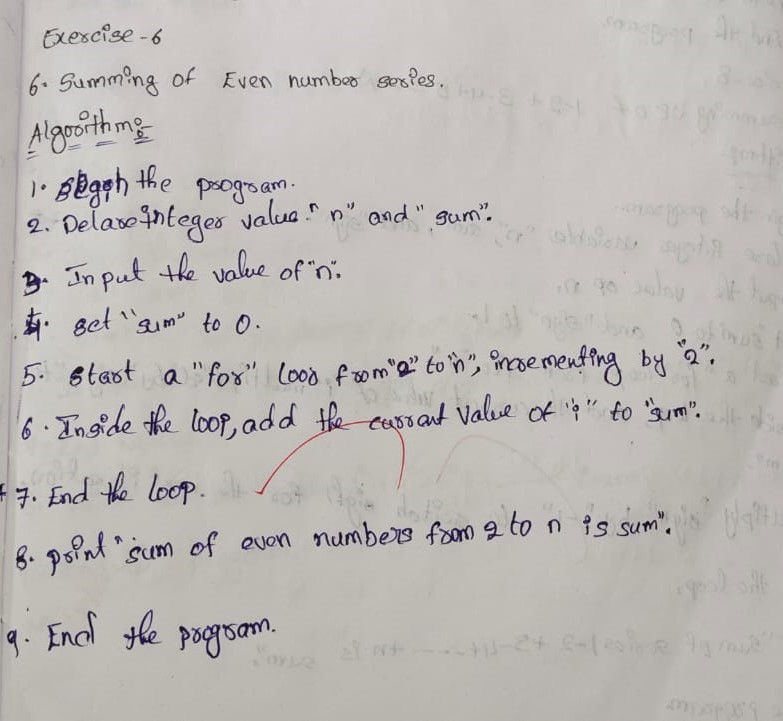 Exercise-6
6. Summing of Even number series.
Algorithm:
1. Begin the program.
2. Delare integer value "n" and "sum".
3. Input the value of "n".
4. set "sum" to 0.
5. start a "for" loop from "2" to "n", incrementing by "2".
6. Inside the loop, add the current value of "i" to "sum".
7. End the loop.
8. print "sum of even numbers from 2 to n is sum".
9. End the program.